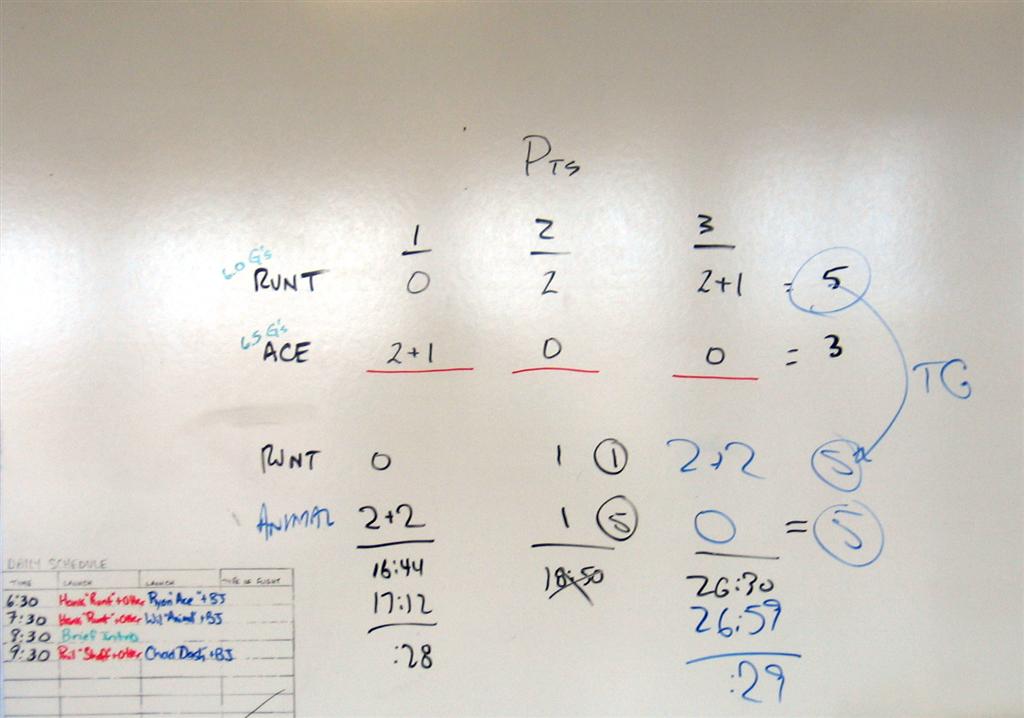 PTS
1 2 3
6.0 G's
RUNT 0 2 2+1 = 5
6.5 G's
ACE 2+1 0 0 = 3
TG
RUNT 0 1 1 2+2 5
ANIMAL 2+2 1 5 0 = 5
16:44 18:50 26:30
17:12 26:59
:28 :29
DAILY SCHEDULE
TIME LAUNCH LAUNCH TYPE OF FLIGHT
6:30 Hank "Runt" + Otter Ryan "Ace" + BJ
7:30 Hank "Runt" + Otter Wil "Animal" + BJ
8:30 Brief Intro
9:30 Phil "Shaff + Otter Chad Dash + BJ